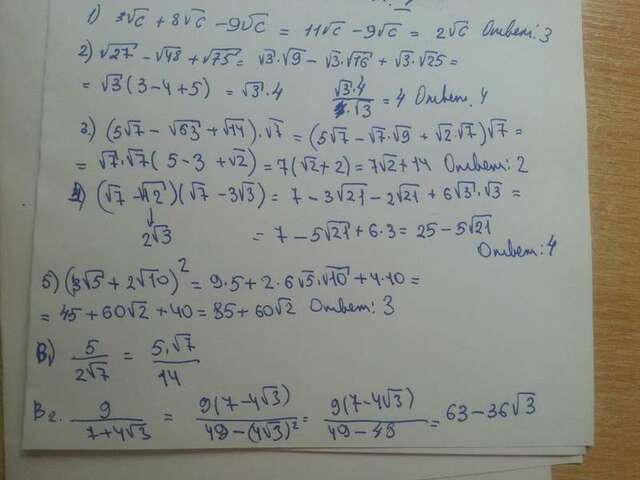 1) 3√c + 8√c − 9√c = 11√c − 9√c = 2√c Ответ: 3
2) √27 − √48 + √75 = √3·√9 − √3·√16 + √3·√25 =
= √3(3−4+5) = √3·4 √3·4/√3 = 4 Ответ. 4
3) (5√7 − √63 + √14)·√7 = (5√7 − √7·√9 + √2·√7)√7 =
= √7·√7(5−3+√2) = 7(√2+2) = 7√2+14 Ответ: 2
4) (√7 − √12)(√7 − 3√3) = 7 − 3√21 − 2√21 + 6√3·√3 =
2√3 = 7 − 5√21 + 6·3 = 25 − 5√21
Ответ: 4
5) (3√5 + 2√10)² = 9·5 + 2·6√5·√10 + 4·10 =
= 45 + 60√2 + 40 = 85 + 60√2 Ответ: 3
B1) 5/2√7 = 5·√7/14
B2. 9/7+4√3 = 9(7−4√3)/49−(4√3)² = 9(7−4√3)/49−48 = 63 − 36√3